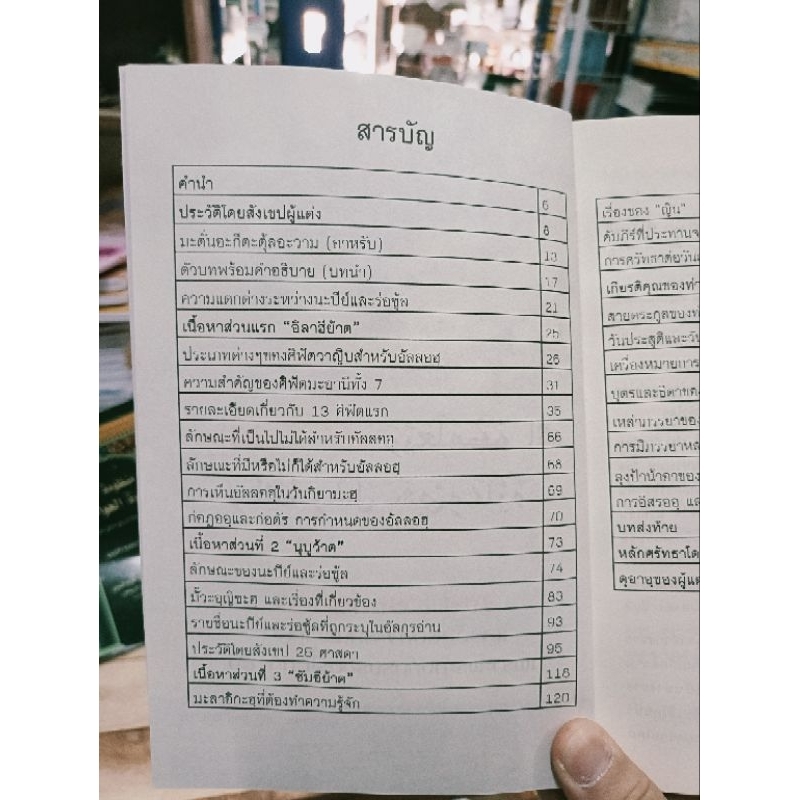 สารบัญ
คำนำ 6
ประวัติโดยสังเขปผู้แต่ง 8
มะตั่นอะกีดะตุ้ลอะวาม (อาหรับ) 13
ตัวบทพร้อมคำอธิบาย (บทนำ) 17
ความแตกต่างระหว่างนะบีย์และร่อซู้ล 21
เนื้อหาส่วนแรก "อิลาฮียาต" 25
ประเภทต่างๆของศิฟัตวาญิบสำหรับอัลลอฮฺ 26
ความสำคัญของศิฟัตมะอานีทั้ง 7 31
รายละเอียดเกี่ยวกับ 13 ศิฟัตแรก 35
ลักษณะที่เป็นไปไม่ได้สำหรับอัลลอฮฺ 66
ลักษณะที่มีหรือไม่ก็ได้สำหรับอัลลอฮฺ 68
การเห็นอัลลอฮฺในวันกิยามะฮฺ 69
ก่อฎออฺและก่อดัร การกำหนดของอัลลอฮฺ 70
เนื้อหาส่วนที่ 2 "นุบูว้าต" 73
ลักษณะของนะบีย์และร่อซู้ล 74
มั๊วะอฺญิซะฮฺ และเรื่องที่เกี่ยวข้อง 83
รายชื่อนะบีย์และร่อซู้ลที่ถูกระบุในอัลกุรอ่าน 93
ประวัติโดยสังเขป 25 ศาสดา 95
เนื้อหาส่วนที่ 3 "ซัมอียาต" 118
มะลาอิกะฮฺที่ต้องทำความรู้จัก 120
เรื่องของ "ญิน"
คัมภีร์ที่ประทาน
การศรัทธาต่อวัน
เกียรติคุณของ
สายตระกูลของ
วันประสูติและวัน
เครื่องหมายการ
บุตรและธิดาของ
เหล่าภรรยาของ
การมีภรรยา
ลุงป้าน้าอาของ
การอิสรออฺ และ
บทส่งท้าย
หลักศรัทธาโดย
ดุอาอฺของผู้แต่ง